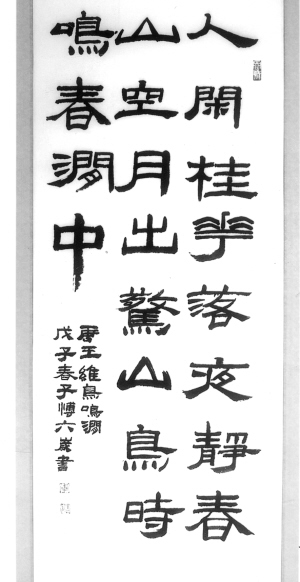 人閑桂華落夜靜春
山空月出驚山鳥時
鳴春澗中
唐王維鳥鳴澗
戊子春子愽六歲書